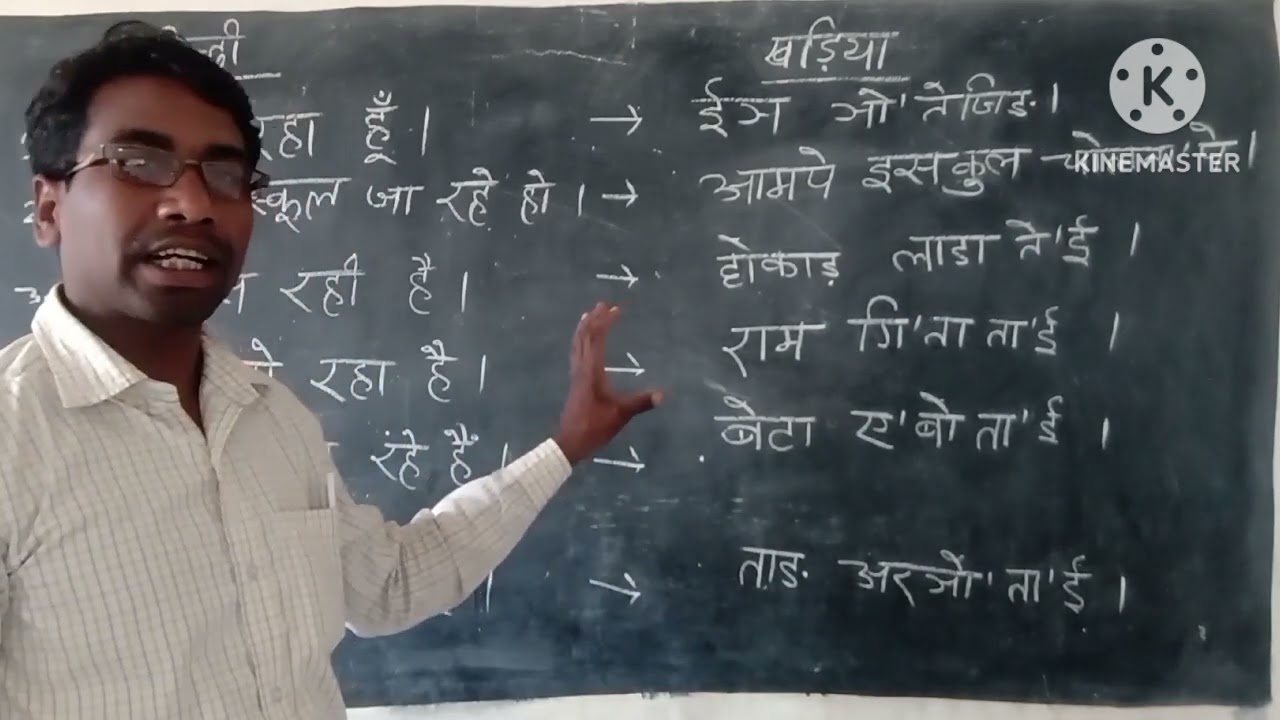 खड़िया
रहा हूँ। → ईञ ञो'तेजिङ।
जा रहे हो। → आमपे इसकुल
रही है। → होकाड़ लाडा ते'ई।
रहा है। → राम गि'ता ता'ई।
रहे हैं। → बेटा ए'बो ता'ई।
→ ताङ अरञो'ता'ई।
K
KINEMASTER